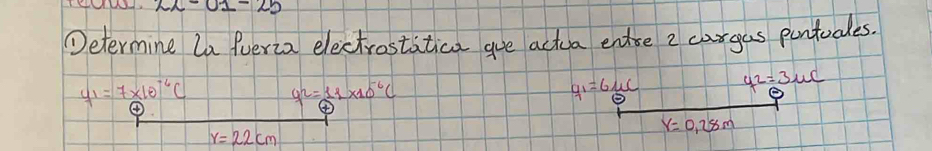 Fecha: 22-01-25
Determine la fuerza electrostática que actua entre 2 cargas puntuales.
q1=7x10⁻⁶C q2=11x10⁻⁶C q1=6μC q2=3μC
+ + - -
r=22cm r=0,28m